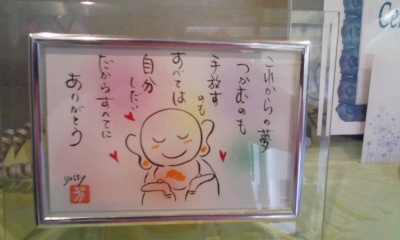 これからの夢
つかむのも
手放す
のも
すべては
自分
したい
だからすべてに
ありがとう
yossy
芳
Ce